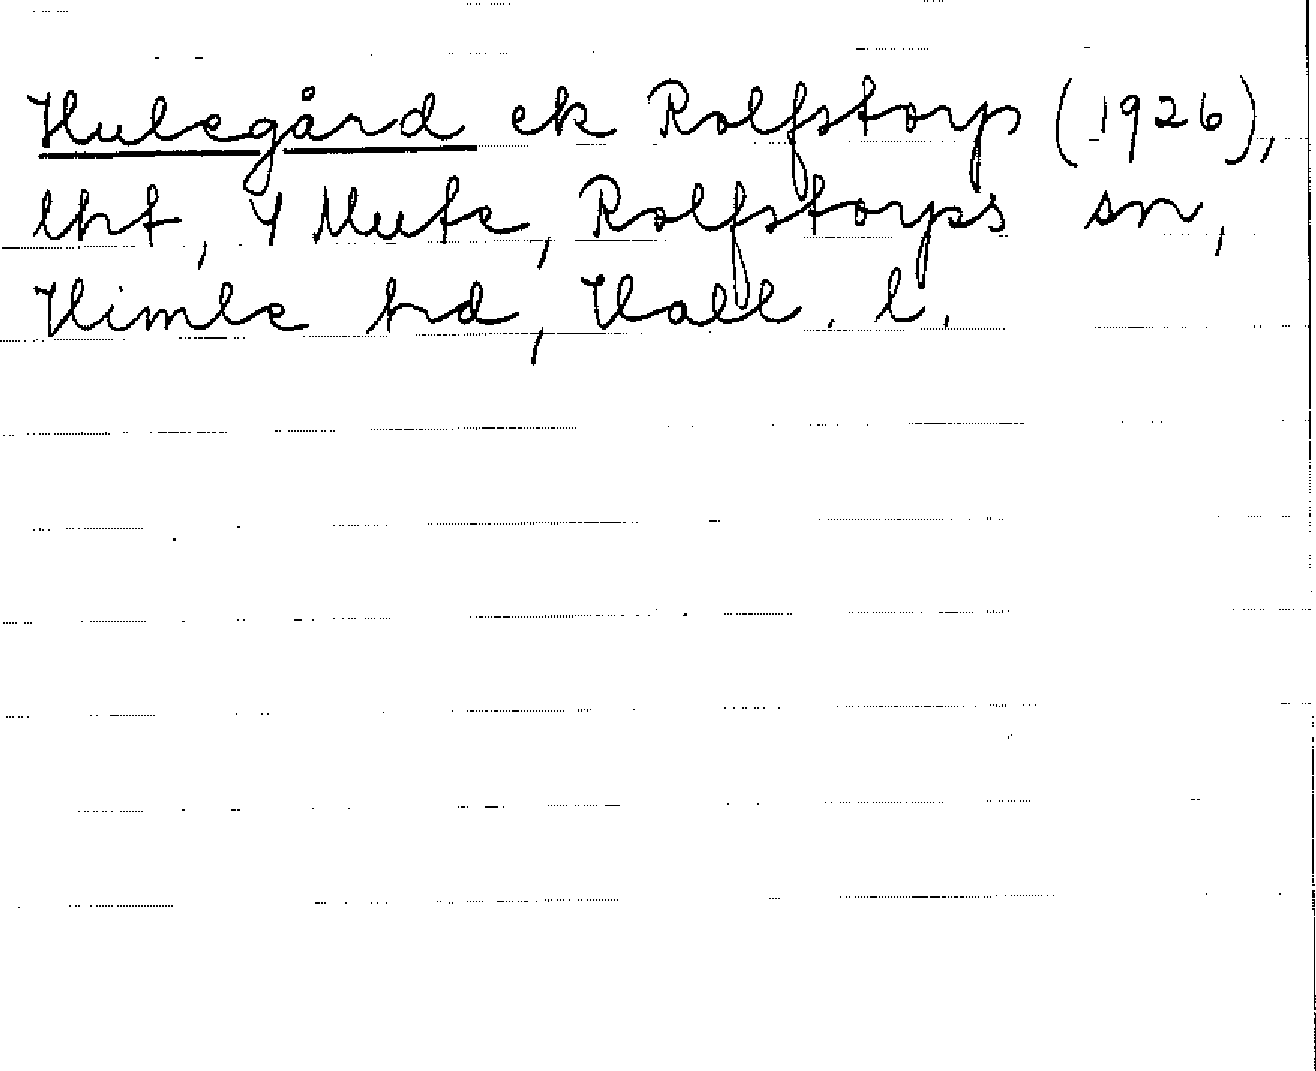 Hulegård ek Rolfstorp (1926),
lht, 4 Mute, Rolfstorps sn,
Himle hd, Hall. l.